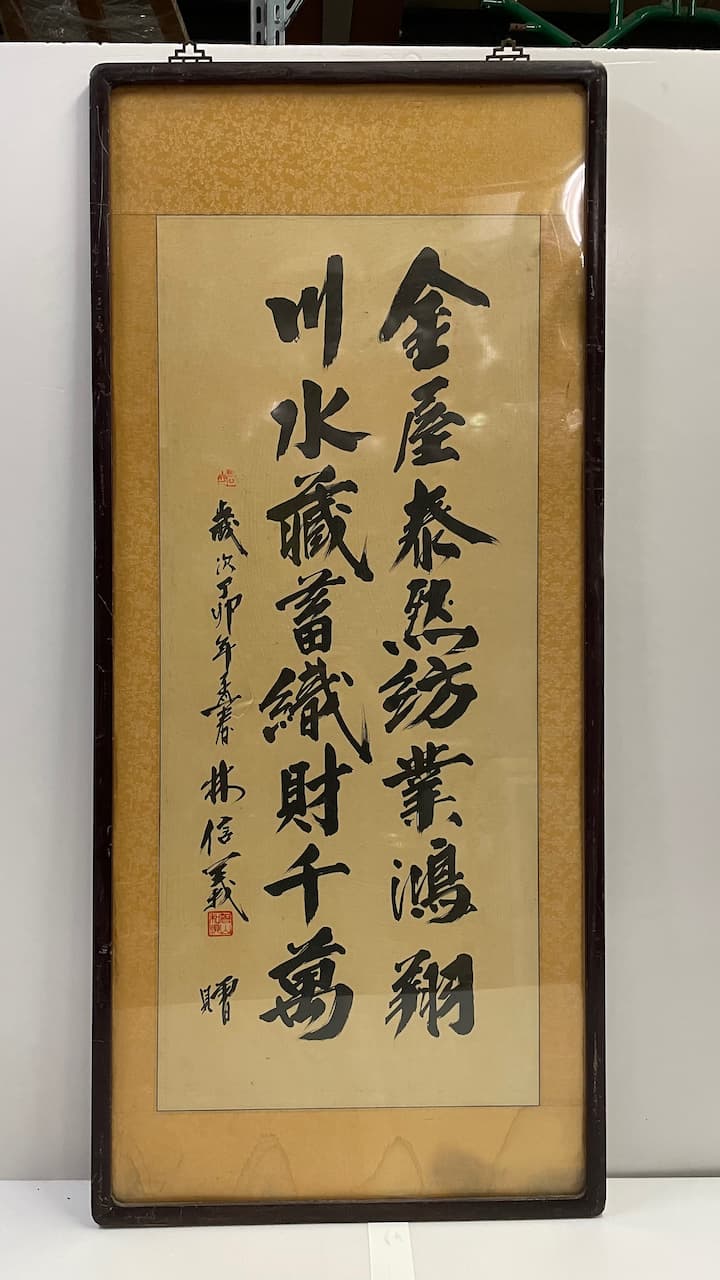 金屋泰然紡業鴻翔
川水藏蓄織財千萬
歲次丁卯年孟春 林信義 贈